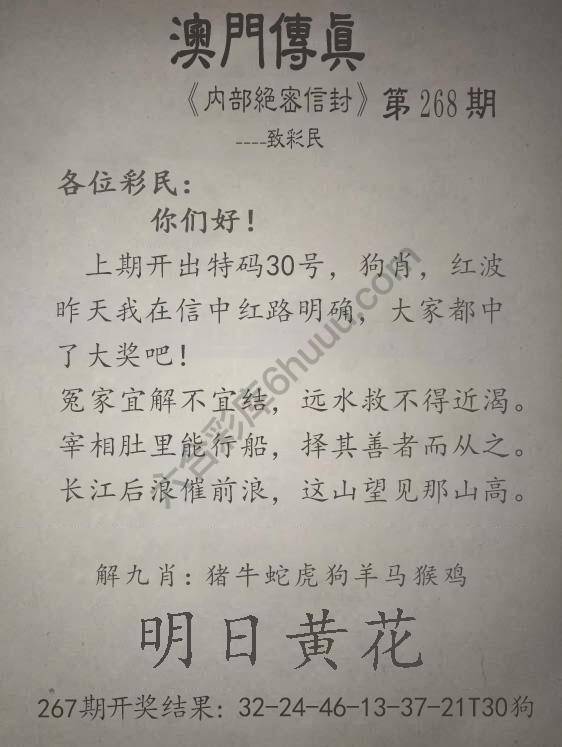 澳門傳眞
《内部絕密信封》第268期
----致彩民
各位彩民：
你们好！
上期开出特码30号，狗肖，红波
昨天我在信中红路明确，大家都中
了大奖吧！
冤家宜解不宜结，远水救不得近渴。
宰相肚里能行船，择其善者而从之。
长江后浪催前浪，这山望见那山高。
六合彩库6huuu.com
解九肖：猪牛蛇虎狗羊马猴鸡
明日黄花
267期开奖结果：32-24-46-13-37-21T30狗